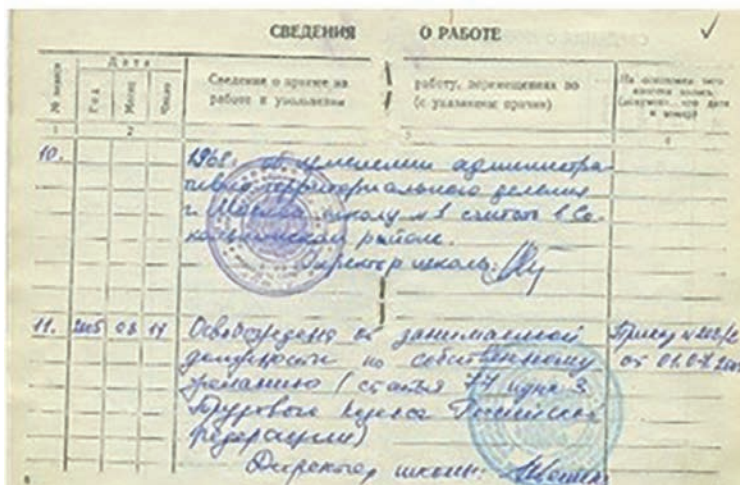 СВЕДЕНИЯ О РАБОТЕ
№ записи
Дата
Год
Месяц
Число
Сведения о приеме на
работу, перемещениях по
работе и увольнении
(с указанием причин)
На основании чего
внесена запись
(документ, его дата
и номер)
1 2 3 4
10. 1968г. об изменении администра-
тивно-территориального деления
г. Москва школу №1 считать в Со-
кольническом районе.
Директор школы:
11. 2005 08 17 Освобождена от занимаемой Приказ
должности по собственному от 01.07.
желанию (статья 77 пункт 3
Трудового Кодекса Российской
Федерации)
Директор школы: